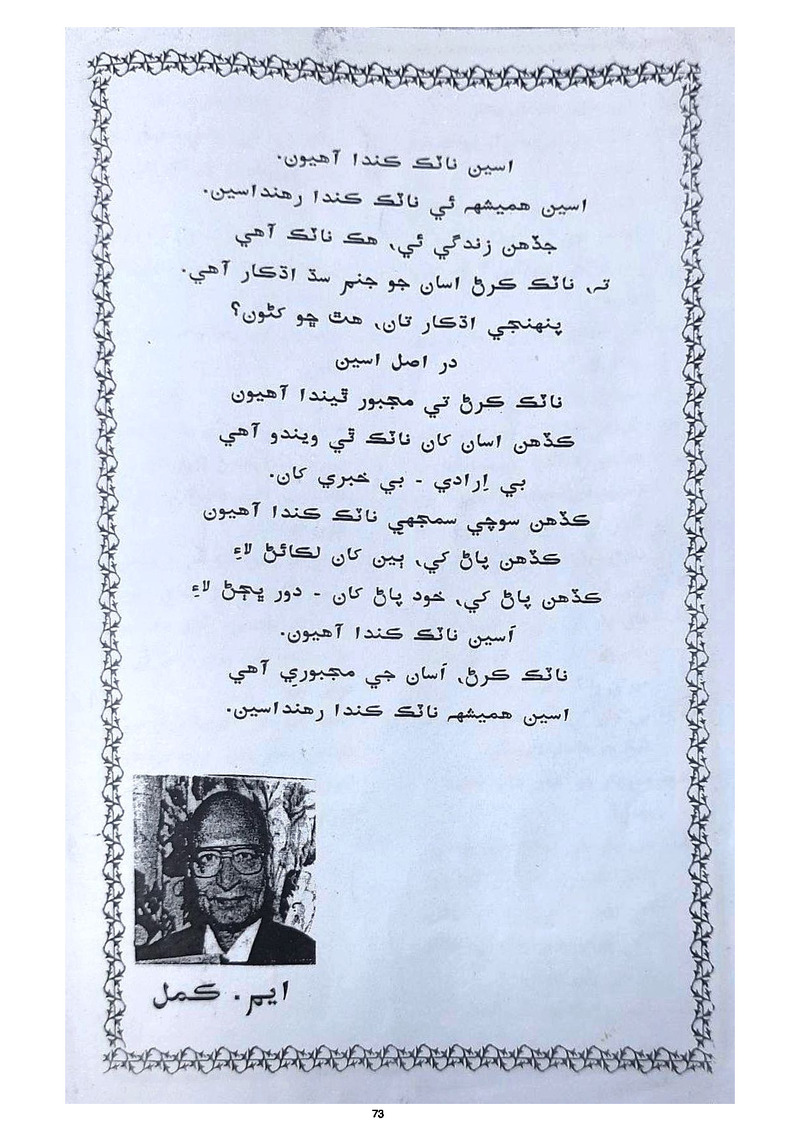 اسين ناٽڪ ڪندا آهيون.
اسين هميشهہ ئي ناٽڪ ڪندا رهنداسين.
جڏهن زندگي ئي، هڪ ناٽڪ آهي
تہ، ناٽڪ ڪرڻ اسان جو جنم سڌ اڌڪار آهي.
پنهنجي اڌڪار تان، هٿ ڇو کڻون؟
در اصل اسين
ناٽڪ ڪرڻ تي مجبور ٿيندا آهيون
ڪڏهن اسان کان ناٽڪ ٿي ويندو آهي
بي اِرادي - بي خبري کان.
ڪڏهن سوچي سمجهي ناٽڪ ڪندا آهيون
ڪڏهن پاڻ کي، ٻين کان لڪائڻ لاءِ
ڪڏهن پاڻ کي، خود پاڻ کان - دور ڀڄڻ لاءِ
اَسين ناٽڪ ڪندا آهيون.
ناٽڪ ڪرڻ، اَسان جي مجبورِي آهي
اسين هميشهہ ناٽڪ ڪندا رهنداسين.
ايم. ڪمل
73